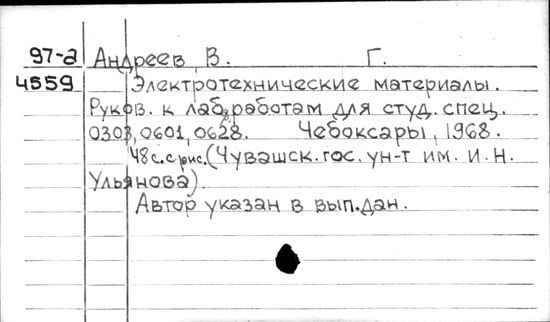 97-а Андреев, В. Г.
4559 Электротехнические материалы.
Руков. к лаб. работам для студ. спец.
0303, 0601, 0628. Чебоксары, 1968.
48 с. с рис. (Чувашск. гос. ун-т им. И. Н.
Ульянова).
Автор указан в вып. дан.